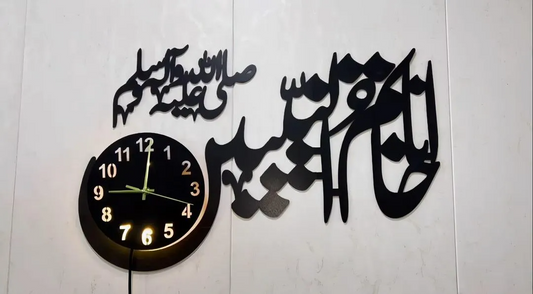 خاتم النبیین
صلی اللہ علیہ وآلہ وسلم
12
1
2
3
4
5
6
7
8
9
10
11